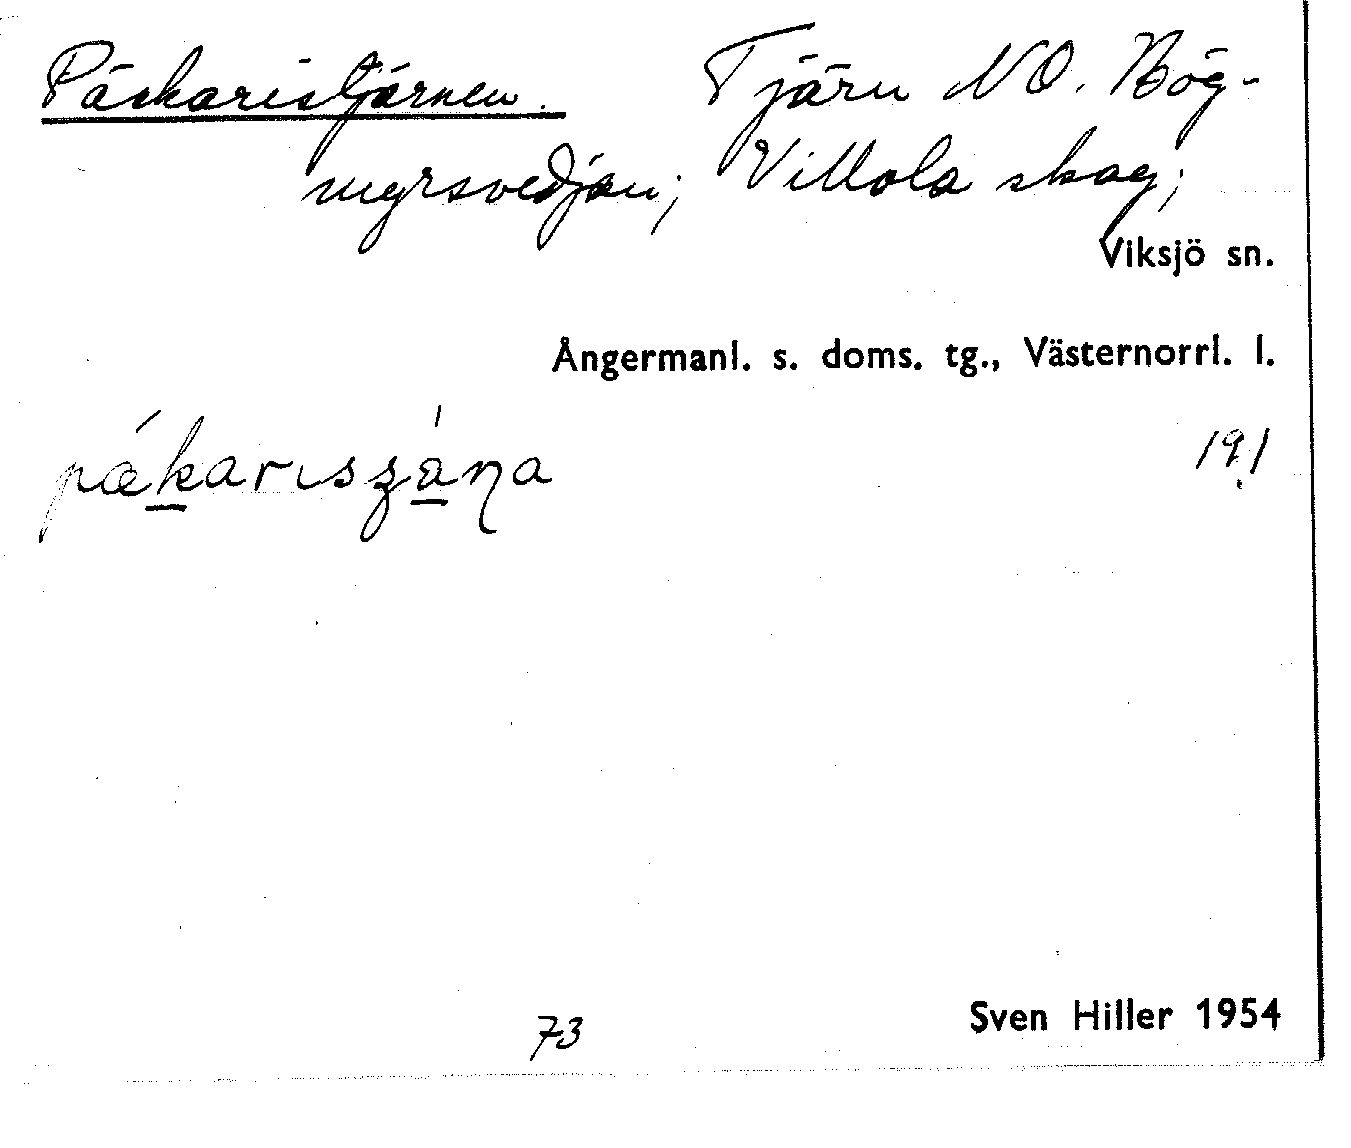 Päskaristjärnen. Tjärn NO. Hög-
myrsvedjan; Villola skog;
Viksjö sn.
Ångermanl. s. doms. tg., Västernorrl. l.
191
Sven Hiller 1954
73